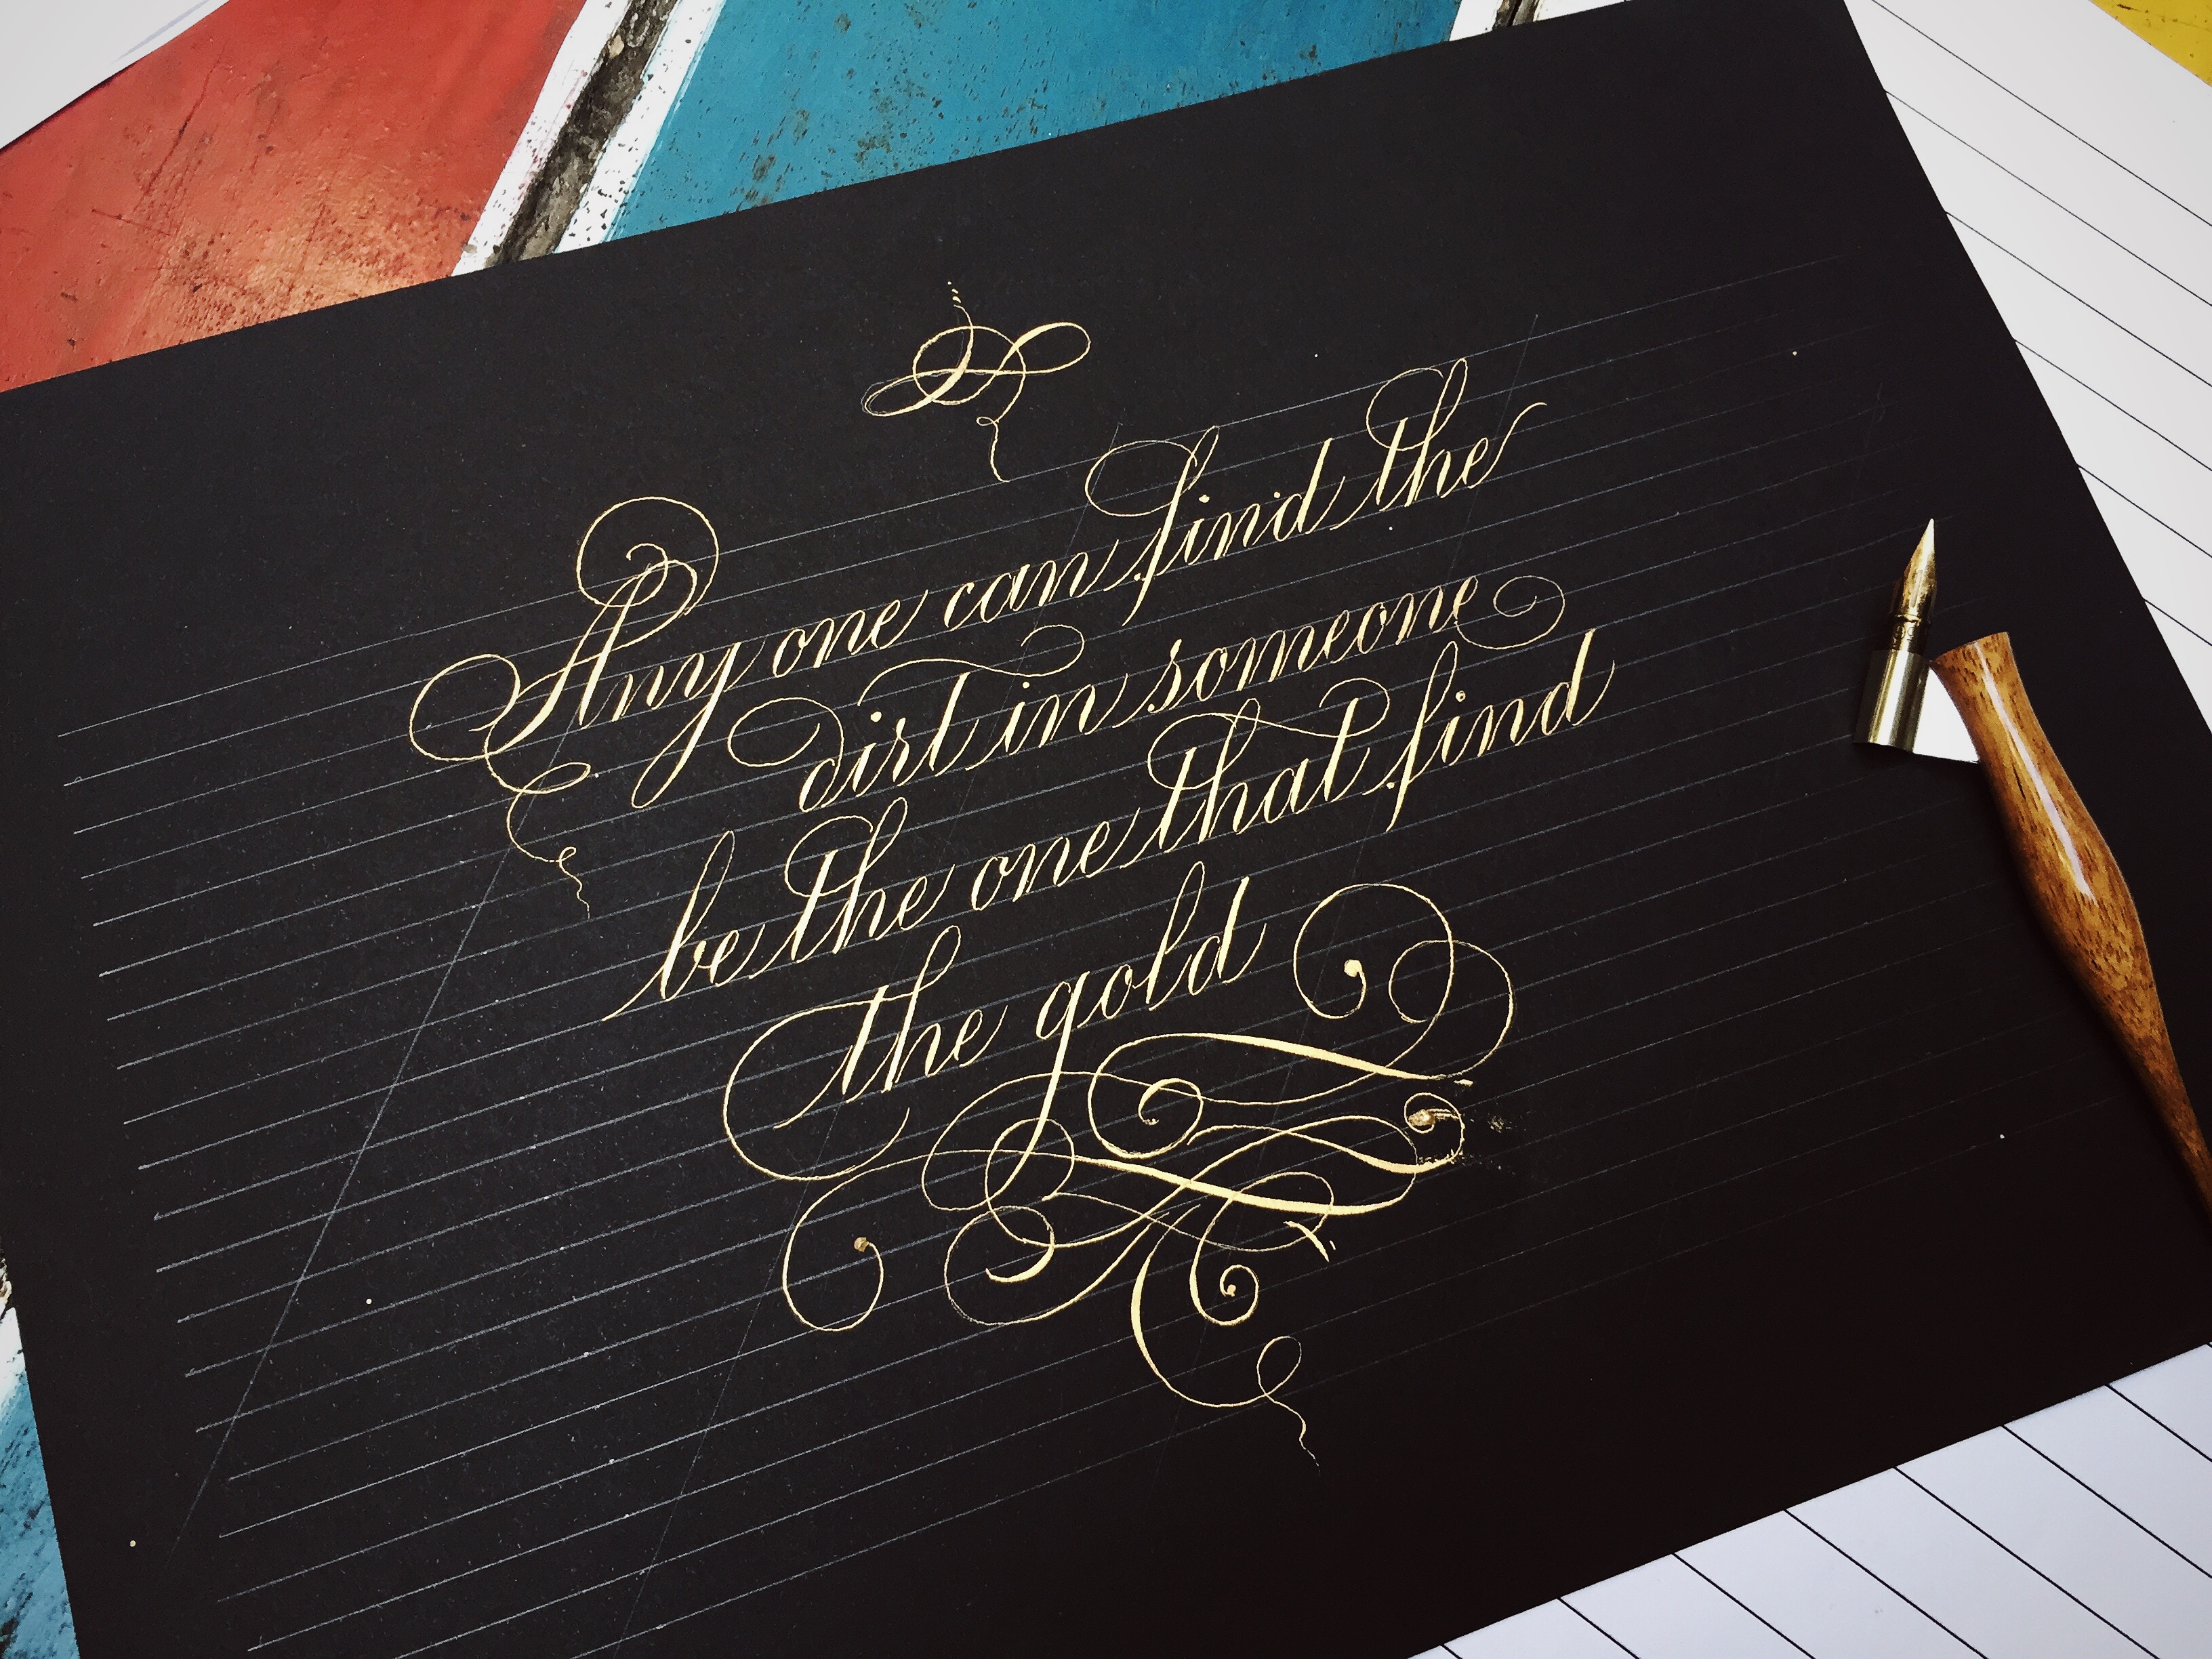 Any one can find the
dirt in someone
be the one that find
the gold